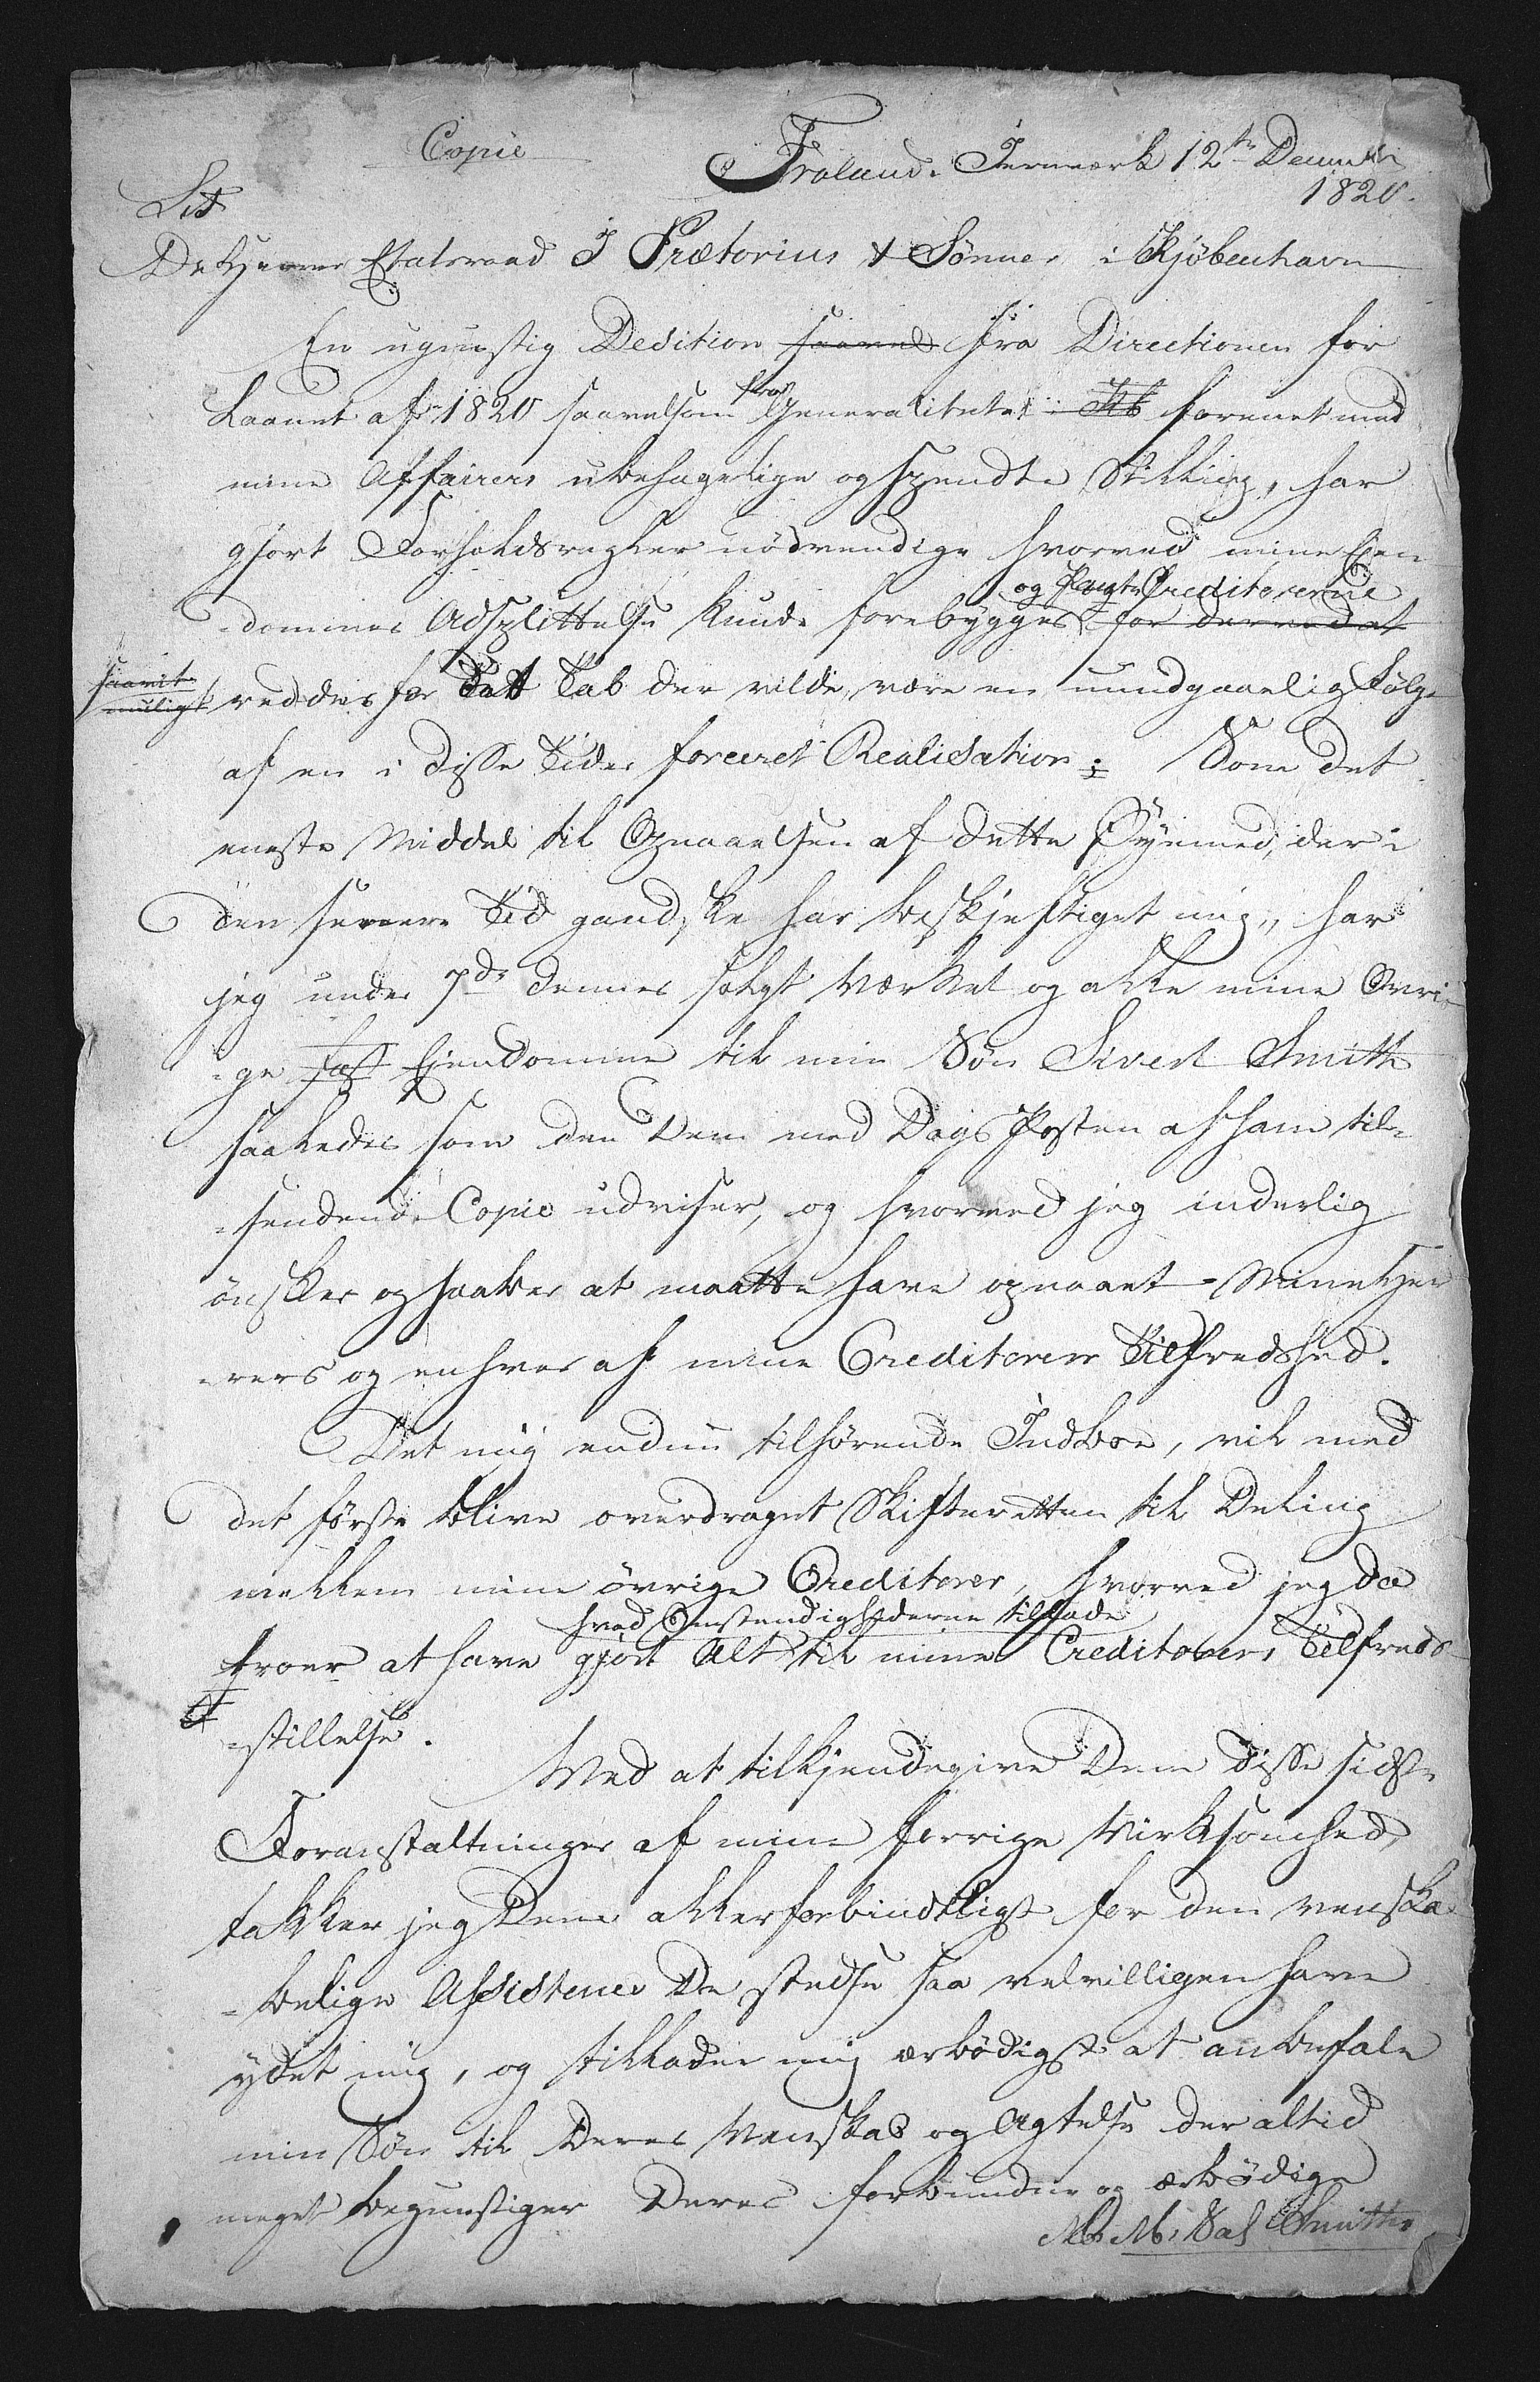 Copie
Froland Jernværk 12te Decembr
1820.
De Herrer Etatsraad J Prætorius & Sönner i Kjöbenhavn
En ugunstig Dedition saavel fra Directionen for
Laanet af 1820 saavelsom fra Generalitetet forenet med
mine Affairers ubehagelige og spendte Stilling, har
gjort Forholdsregler nödvendige hvorved mine Ejen
=dommes Adsplittelse kunde forebygges og Creditorerne
for derved at
saavit
muligt
reddes for Tab der vilde være en uundgaaelig Fölge
af en i disse Tider forceret Realisation; Som det
eneste Middel til Opnaaelsen af dette Öyemed, der i
den senere Tid gandske har beskjeftiget mig, har
jeg under 7de dennes solgt Værket og alle mine Övri
=ge fast Ejendomme til min Sön Sivert Smith
saaledes som den Dem med Dags Posten af ham til=
=sendende Copie udviser, og hvorved jeg inderlig
önsker og haaber at maatte have opnaaet Mine Her
=rers og enhver af mine Creditorers Tilfredshed.
Det mig endnu tilhörende Indboe, vil med
det förste blive overdraget Skifteretten til Deling
mellem mine övrige Creditorer, hvorved jeg da
hvad Omstendighederne tillade
troer at have gjort Alt til mine Creditorers Tilfreds
=stillelse.
Ved at tilkjendegive Dem disse sidste
Foranstaltninger af min forrige Virksomhed,
takker jeg Dem allerforbindtligst for den venska
=belige Assistence De stedse saa velvilligen have
ydet mig, og tillader mig ærbödigst at anbefale
min Sön til Deres Venskab og Agtelse der altid
meget begunstiger Deres forbundne og ærbödige
Smith